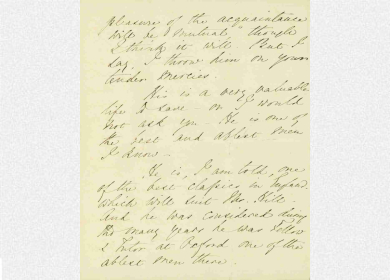 pleasure of the acquaintance
will be "mutual," though
I think it will. But I
say, I throw him on your
tender mercies.
His is a very valuable
life to save - or I would
not ask you. He is one of
the best and ablest men
I know -
He is, I am told, one
of the best classics in England
which will suit Mr. Hill -
and he was considered during
the many years he was Fellow
& Tutor at Oxford one of the
ablest men there.